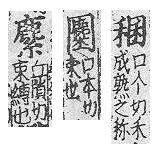 稇
口本切禾
成熟之称
口本切
束也
口隕切
束縛也